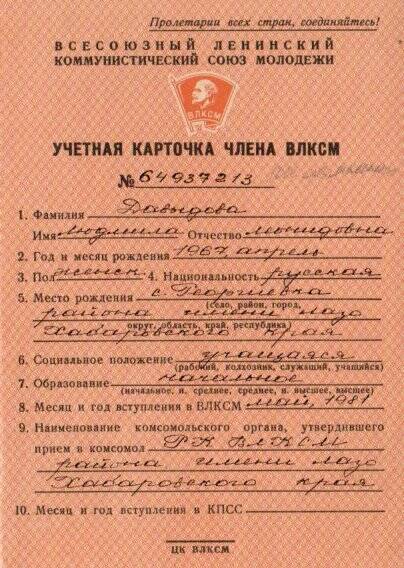 Пролетарии всех стран, соединяйтесь!
ВСЕСОЮЗНЫЙ ЛЕНИНСКИЙ
КОММУНИСТИЧЕСКИЙ СОЮЗ МОЛОДЕЖИ
ВЛКСМ
УЧЕТНАЯ КАРТОЧКА ЧЛЕНА ВЛКСМ
№ 64937213
1. Фамилия Давыдова
Имя Людмила Отчество Леонидовна
2. Год и месяц рождения 1967 апрель
3. Пол женск 4. Национальность русская
5. Место рождения с. Георгиевка
(село, район, город,
района имени Лазо
округ, область, край, республика)
Хабаровского края
6. Социальное положение учащаяся
(рабочий, колхозник, служащий, учащийся)
7. Образование начальное
(начальное, н. среднее, среднее, н. высшее, высшее)
8. Месяц и год вступления в ВЛКСМ май, 1981
9. Наименование комсомольского органа, утвердившего
прием в комсомол РК ВЛКСМ
района имени Лазо
Хабаровского края
10. Месяц и год вступления в КПСС
ЦК ВЛКСМ